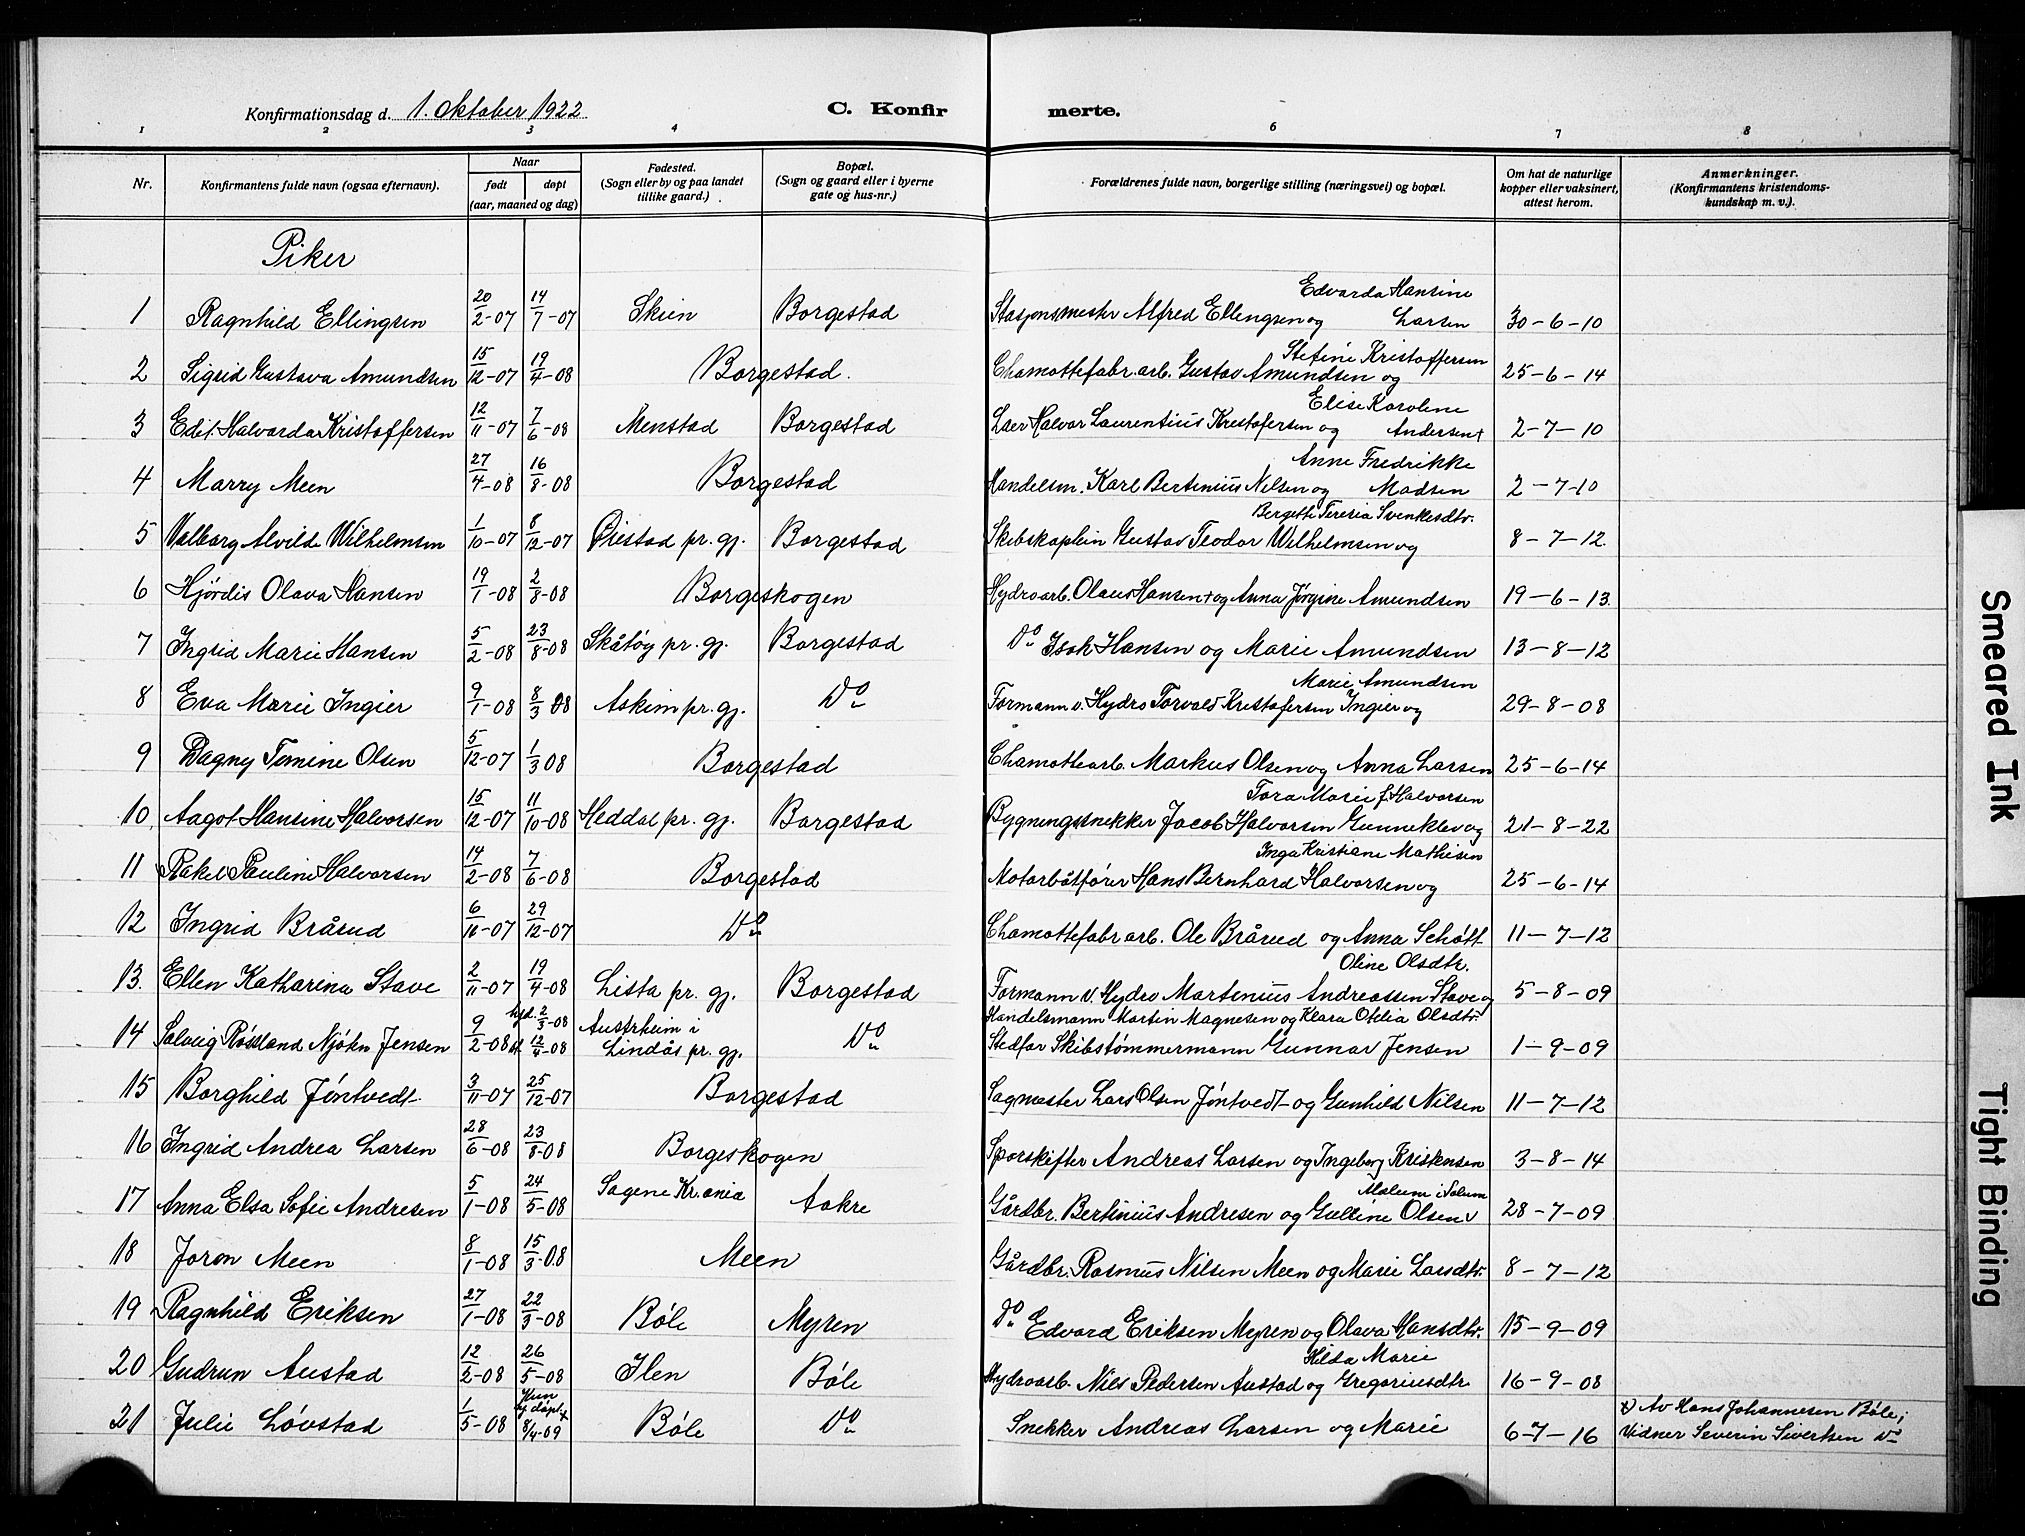 Konfirmationsdag d. 1. Oktober 1922 C. Konfir merte.
1 2 3 4 6 7 8
Nr. Konfirmantens fulde navn (ogsaa efternavn). Naar født døpt (aar, maaned og dag) Fødested. (Sogn eller by og paa landet tillike gaard.) Bopæl. (Sogn og gaard eller i byerne gate og hus-nr.) Forældrenes fulde navn, borgerlige stilling (næringsvei) og bopæl. Om hat de naturlige kopper eller vaksinert, attest herom. Anmerkninger. (Konfirmantens kristendoms-kundskap m. v.).
Piker
Edvarda Hansine
1 Ragnhild Ellingsen 20/2-07 14/7-07 Skien Borgestad Stasjonsmester Alfred Ellingsen og Larsen 30-6-10
Stefine Kristoffersen
2 Sigrid Gustava Amundsen 15/12-07 19/4-08 Borgestad. Chamottefabr. arb. Gustav Amundsen og 25-6-14
Elise Karoline
3 Edit Halvarda Kristoffersen 12/11-07 7/6-08 Menstad Borgestad Laer Halvor Laurentius Kristofersen og Andersen 2-7-10
Anne Fredrikke
4 Marry Meen 27/4-08 16/8-08 Borgestad Handelsm. Karl Bertinius Nilsen og Madsen 2-7-10
Bergette Teresia Svenkesdtr.
5 Valborg Alvilde Wilhelmsen 1/10-07 8/12-07 Øiestad pr. gj. Borgestad Skibskaptein Gustav Teodor Wilhelmsen og 8-7-12.
6 Hjørdis Olava Hansen 19/1-08 2/8-08 Borgeskogen Hydroarb. Olaus Hansen + og Anna Jørgine Amundsen 19-6-13.
7 Ingrid Marie Hansen 5/2-08 23/8-08 Skåtøy pr. gj. Borgestad Do Isak Hansen og Marie Amundsen 13-8-12
Marie Amundsen
8 Eva Marie Ingier 9/1-08 8/3 08 Askim pr. gj. Do Formann v. Hydro Torvald Kristofersen Ingier og 29-8-08
9 Dagny Tomine Olsen 5/12-07 1/3 08 Borgestad Chamottearb. Markus Olsen og Anna Larsen 25-6-14
Tora Marie f. Halvorsen
10 Aagot Hansine Halvorsen 15/12-07 11/10-08 Heddal pr. gj. Borgestad Bygningssnekker Jacob Halvorsen Gunneklev og 21-8-22
Inga Kristiane Mathisen
11 Rakel Pauline Halvorsen 14/2-08 7/6-08 Borgestad Motorbåtfører Hans Bernhard Halvorsen og 25-6-14
12 Ingrid Brårud 6/10-07 29/12-07 Do Chamottefabr arb. Ole Brårud og Anna Schøtt 11-7-12
Oline Olsdtr.
13. Ellen Katharina Stave 2/11-07 19/4-08 Lista pr. gj. Borgestad Formann v. Hydro Martinius Andreassen Stave og 5-8-09
hjd. 2/3-08 Austrheim i Handelsmann Martin Magnesen og Klara Otilia Olsdtr.
14 Solveig Røssland Njøkn Jensen 9/2-08 12/4-08 Lindås pr. gj. Do Stedfar Skibstømmermann Gunnar Jensen 1-9-09
15 Borghild Jøntvedt 3/11-07 25/12-07 Borgestad Sagmester Lars Olsen Jøntvedt og Gunhild Nilsen 11-7-12
16 Ingrid Andrea Larsen 28/6-08 23/8-08 Borgeskogen Sporskifter Andreas Larsen og Ingeborg Kristensen 3-8-14
Mælum i Solum
17 Anna Elsa Sofie Andresen 5/1-08 24/5-08 Sagene Kr.ania Aakre Gårdbr. Bertinius Andresen og Gulline Olsen 28-7-09
18 Joron Meen 8/1-08 15/3-08 Meen Gårdbr. Rasmus Nilsen Meen og Marie Larsdtr. 8-7-12
19 Ragnhild Eriksen 27/1-08 22/3-08 Bøle Myren Do Edvard Eriksen Myren og Olava Hansdtr. 15-9-09
Hilda Marie
20 Gudrun Austad 12/2-08 26/5-08 Ilen Bøle Hydroarb. Nils Pedersen Austad og Gregoriusdtr 16-9-08
Kun hj. døpt x) Av Hans Johannesen Bøle;
21 Julie Løvstad 1/5-08 8/4-09 Bøle Do Snekker Andreas Larsen og Marie 6-7-16 Vidner Severin Sivertsen Do
Smeared Ink
Tight Binding